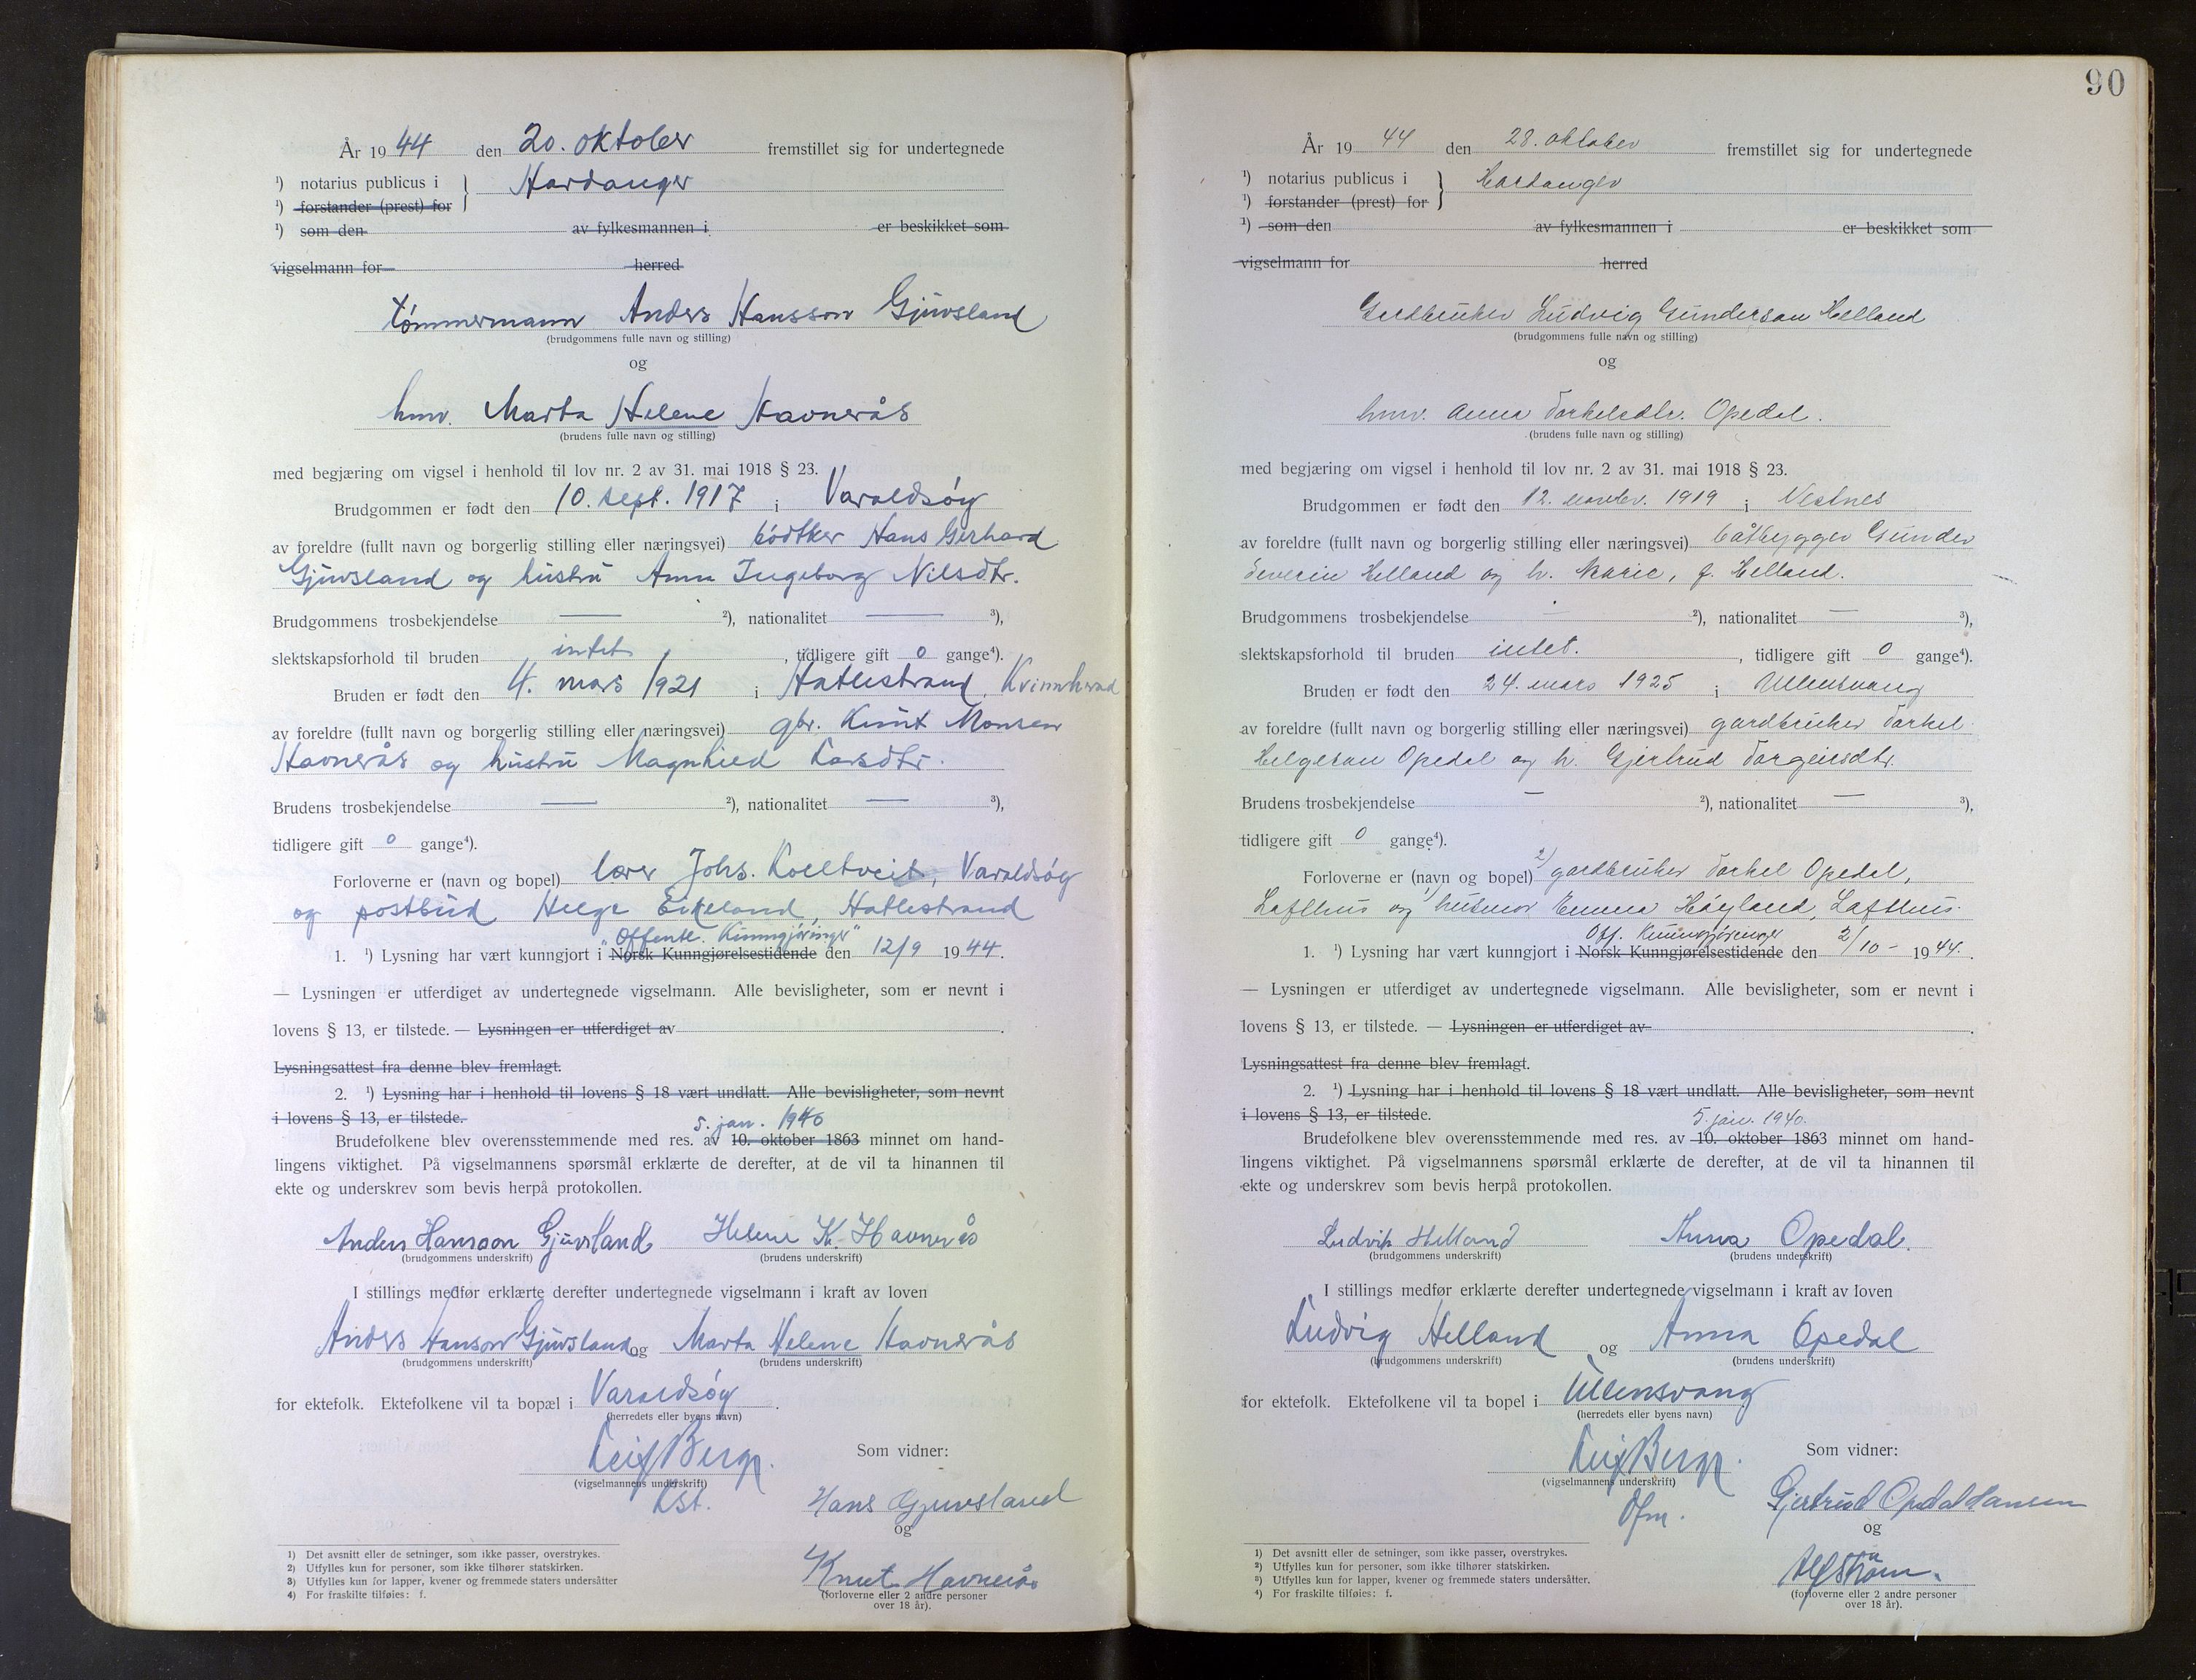 År 19 44 den 20. oktober fremstillet sig for undertegnede
¹) notarius publicus i } Hardanger
¹) forstander (prest) for
¹) som den av fylkesmannen i er beskikket som
vigselmann for herred
tømmermann Anders Hansson Gjuvsland
(brudgommens fulle navn og stilling)
og
hmv. Marta Helene Havnerås
(brudens fulle navn og stilling)
med begjæring om vigsel i henhold til lov nr. 2 av 31. mai 1918 § 23.
Brudgommen er født den 10. sept. 1917 i Varaldsøy
av foreldre (fullt navn og borgerlig stilling eller næringsvei) bödtker Hans Gerhard
Gjuvsland og hustru Anna Ingeborg Nilsdtr.
Brudgommens trosbekjendelse — ²), nationalitet — ³),
slektskapsforhold til bruden intet , tidligere gift 0 gange⁴).
Bruden er født den 4. mars 1921 i Hatlestrand, Kvinnherad
av foreldre (fullt navn og borgerlig stilling eller næringsvei) gbr. Knut Monsen
Havnerås og hustru Magnhild Larsdtr.
Brudens trosbekjendelse — ²), nationalitet — ³),
tidligere gift 0 gange⁴).
Forloverne er (navn og bopel) lærer Johs. Koeltveit, Varaldsøy
og postbud Helge Eikeland, Hatlestrand
"Offentl. Kunngjøringer"
1. ¹) Lysning har vært kunngjort i Norsk Kunngjørelsestidende den 12/9 1944.
— Lysningen er utferdiget av undertegnede vigselmann. Alle bevisligheter, som er nevnt i
lovens § 13, er tilstede. — Lysningen er utferdiget av .
Lysningsattest fra denne blev fremlagt.
2. ¹) Lysning har i henhold til lovens § 18 vært undlatt. Alle bevisligheter, som nevnt
i lovens § 13, er tilstede.
5. jan. 1940
Brudefolkene blev overensstemmende med res. av 10. oktober 1863 minnet om hand-
lingens viktighet. På vigselmannens spørsmål erklærte de derefter, at de vil ta hinannen til
ekte og underskrev som bevis herpå protokollen.
Anders Hansson Gjuvsland Helene K. Havnerås
(brudgommens underskrift) (brudens underskrift)
I stillings medfør erklærte derefter undertegnede vigselmann i kraft av loven
Anders Hanson Gjuvsland og Marta Helene Havnerås
(brudgommens underskrift) (brudens underskrift)
for ektefolk. Ektefolkene vil ta bopæl i Varaldsøy .
(herredets eller byens navn)
Leif Berge.
(vigselmannens underskrift)
Kst.
Som vidner:
Hans Gjuvsland
og
Knut Havnerås
(forloverne eller 2 andre personer
over 18 år).
1) Det avsnitt eller de setninger, som ikke passer, overstrykes.
2) Utfylles kun for personer, som ikke tilhører statskirken.
3) Utfylles kun for lapper, kvener og fremmede staters undersåtter
4) For fraskilte tilføies: f.
90
År 19 44 den 28. oktober fremstillet sig for undertegnede
¹) notarius publicus i } Hardanger
¹) forstander (prest) for
¹) som den av fylkesmannen i er beskikket som
vigselmann for herred
Gardbruker Ludvig Gunderson Helland
(brudgommens fulle navn og stilling)
og
hmv. Anna Torkelsdtr. Opedal.
(brudens fulle navn og stilling)
med begjæring om vigsel i henhold til lov nr. 2 av 31. mai 1918 § 23.
Brudgommen er født den 12. novbr. 1919 i Vestnes
av foreldre (fullt navn og borgerlig stilling eller næringsvei) båtbygger Gunder
Severin Helland og h. Marie, f. Helland.
Brudgommens trosbekjendelse — ²), nationalitet — ³),
slektskapsforhold til bruden intet. , tidligere gift 0 gange⁴).
Bruden er født den 24. mars 1925 i Ullensvang
av foreldre (fullt navn og borgerlig stilling eller næringsvei) gardbruker Torkel
Helgeson Opedal og h. Gjertrud Torgeirsdtr.
Brudens trosbekjendelse — ²), nationalitet — ³),
tidligere gift 0 gange⁴).
Forloverne er (navn og bopel) 2) gardbruker Torkel Opedal,
Lofthus og 1) husmor Emma Høyland, Lofthus.
Off. Kunngjøringer
1. ¹) Lysning har vært kunngjort i Norsk Kunngjørelsestidende den 2/10 - 1944.
— Lysningen er utferdiget av undertegnede vigselmann. Alle bevisligheter, som er nevnt i
lovens § 13, er tilstede. — Lysningen er utferdiget av .
Lysningsattest fra denne blev fremlagt.
2. ¹) Lysning har i henhold til lovens § 18 vært undlatt. Alle bevisligheter, som nevnt
i lovens § 13, er tilstede.
5. jan. 1940.
Brudefolkene blev overensstemmende med res. av 10. oktober 1863 minnet om hand-
lingens viktighet. På vigselmannens spørsmål erklærte de derefter, at de vil ta hinannen til
ekte og underskrev som bevis herpå protokollen.
Ludvik Helland Anna Opedal.
(brudgommens underskrift) (brudens underskrift)
I stillings medfør erklærte derefter undertegnede vigselmann i kraft av loven
Ludvig Helland og Anna Opedal
(brudgommens underskrift) (brudens underskrift)
for ektefolk. Ektefolkene vil ta bopel i Ullensvang
(herredets eller byens navn)
Leif Berge.
(vigselmannens underskrift)
Ofm.
Som vidner:
Gjertrud Opedal Hansen
og
Alf Strøm.
(forloverne eller 2 andre personer
over 18 år).
1) Det avsnitt eller de setninger, som ikke passer, overstrykes.
2) Utfylles kun for personer, som ikke tilhører statskirken.
3) Utfylles kun for lapper, kvener og fremmede staters undersåtter.
4) For fraskilte tilføies: f.